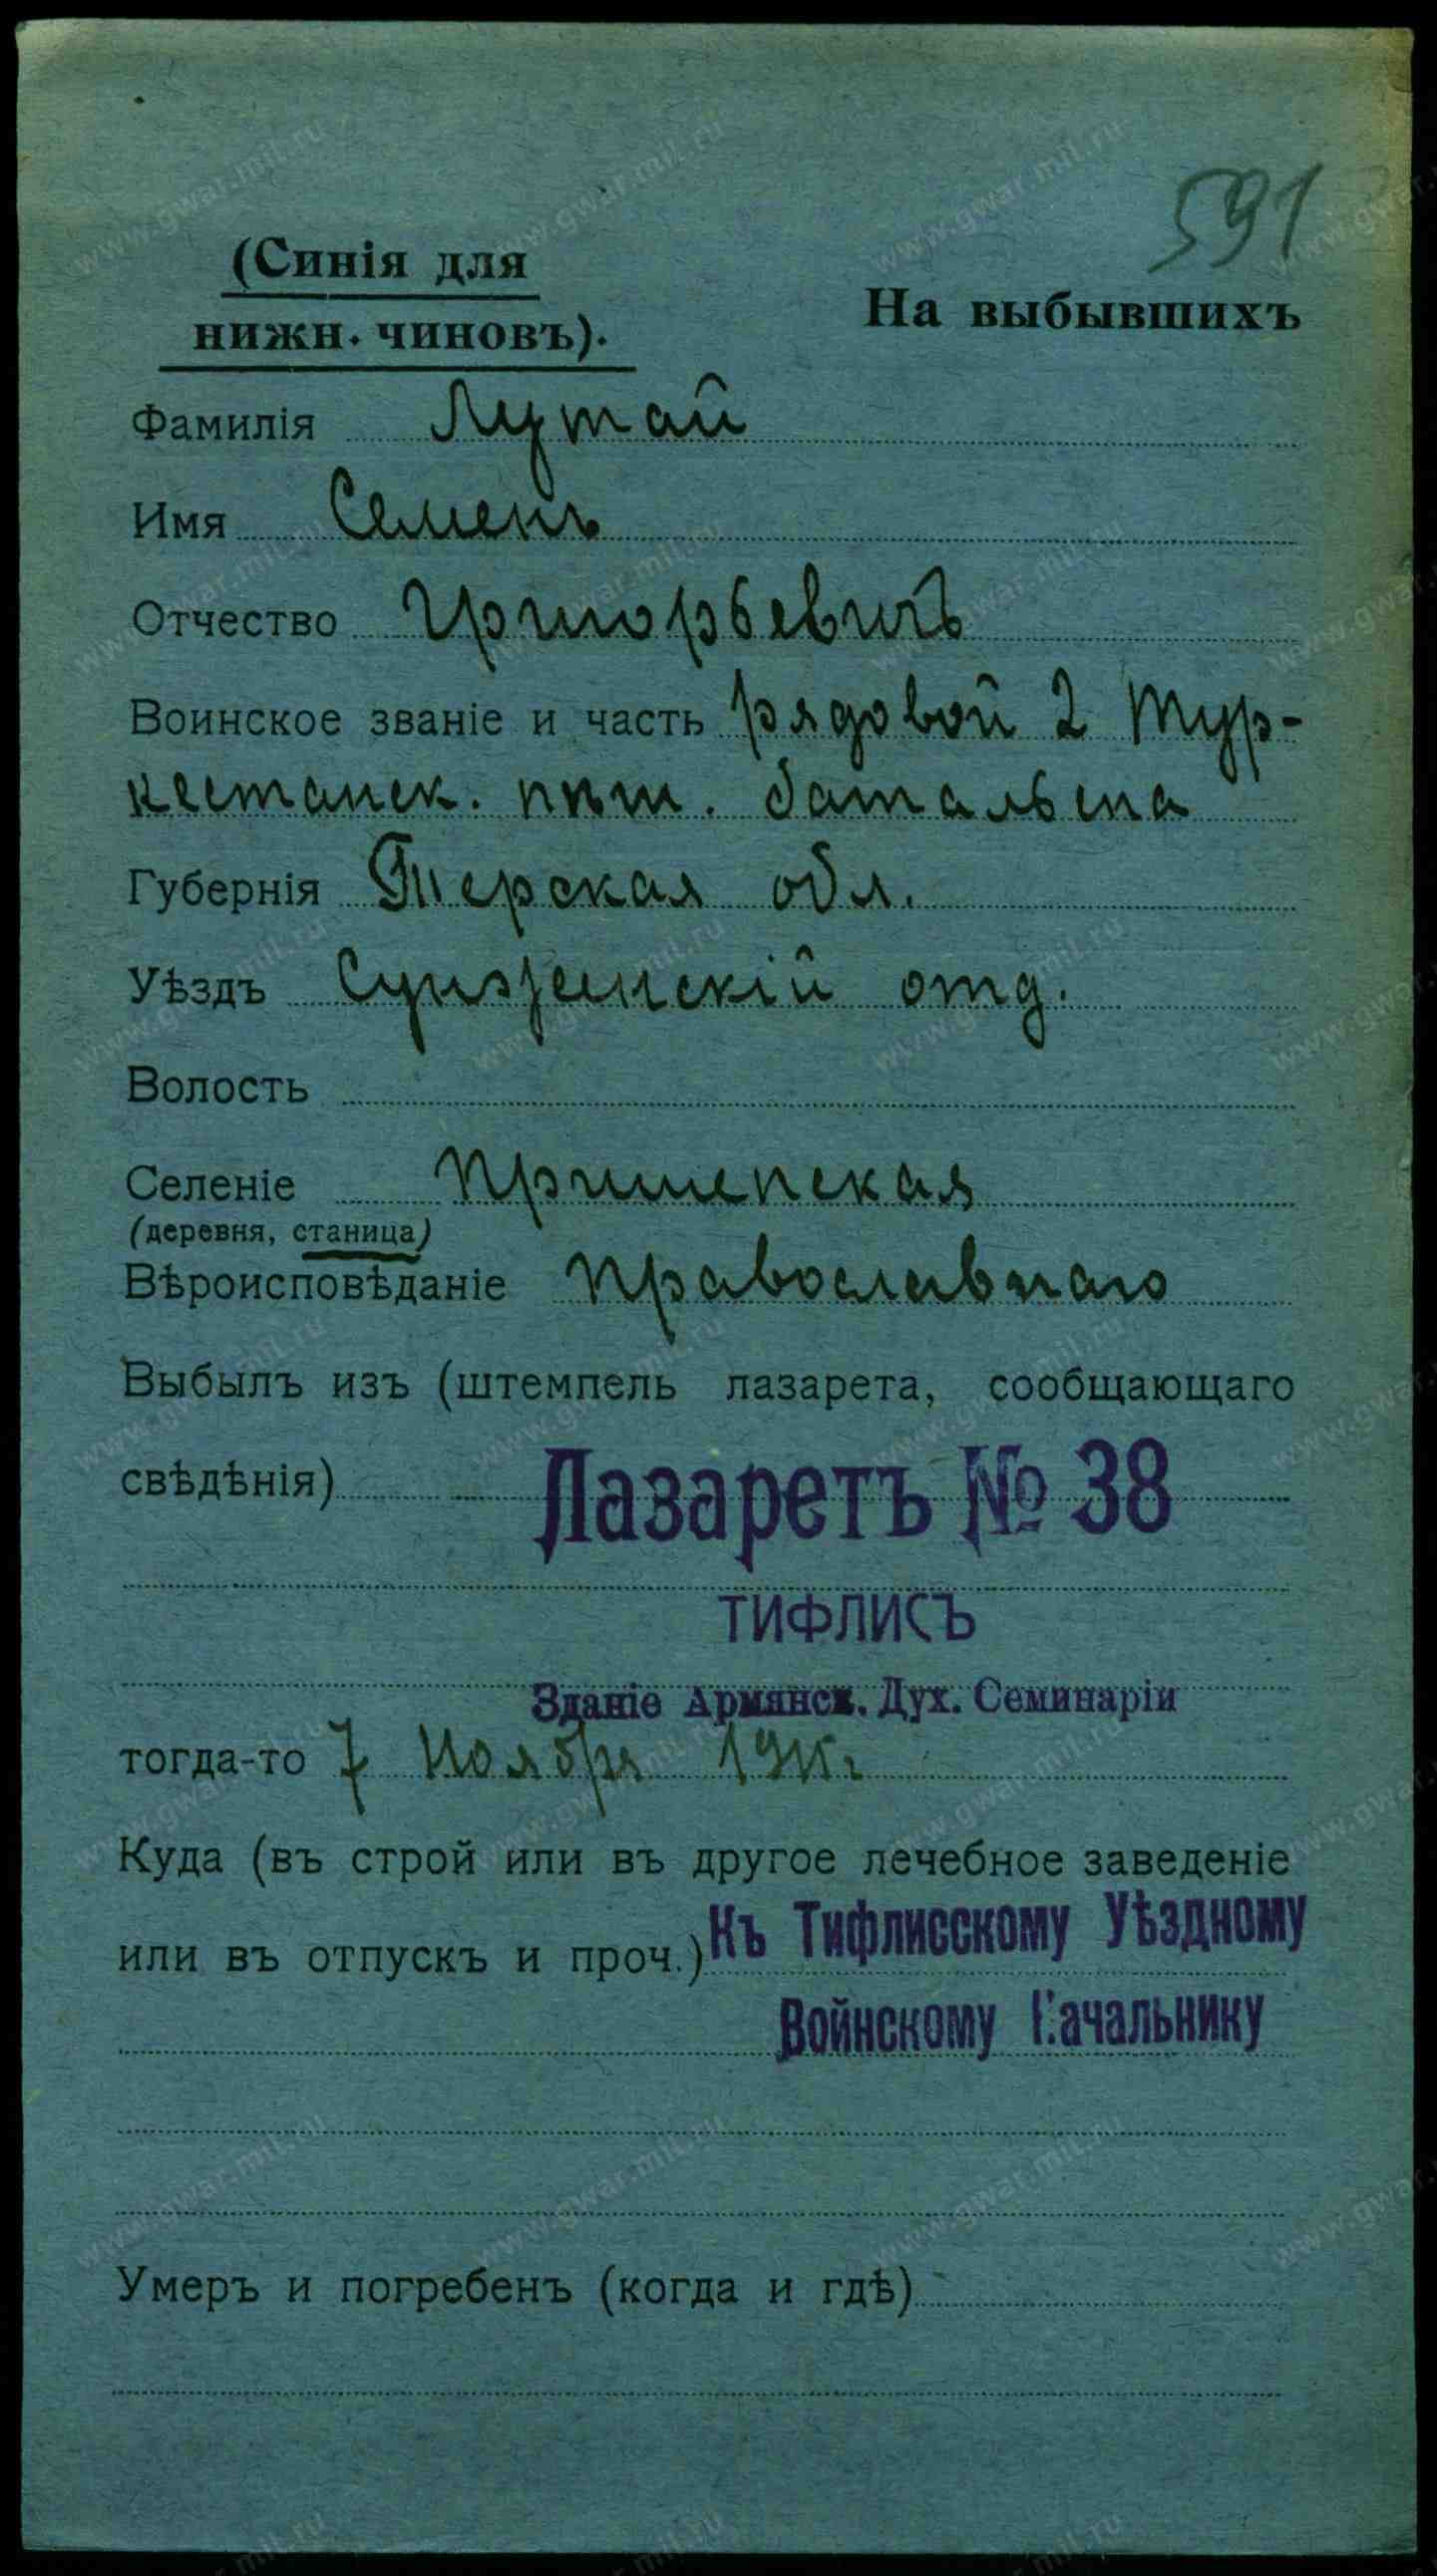 591
(Синія для
нижн. чиновъ).
На выбывшихъ
Фамилія Лутай
Имя Семенъ
Отчество Григорьевичъ
Воинское званіе и часть рядовой 2 Тур-
кестанск. пѣш. батальона
Губернія Терская обл.
Уѣздъ Сунженскій отд.
Волость
Селеніе
(деревня, станица)
Вѣроисповѣданіе православнаго
Выбылъ изъ (штемпель лазарета, сообщающаго
свѣдѣнія) Лазаретъ № 38
ТИФЛИСЪ
Зданіе Армянск. Дух. Семинаріи
тогда-то 7 Ноября
Куда (въ строй или въ другое лечебное заведеніе
или въ отпускъ и проч.) Къ Тифлисскому Уѣздному
Воинскому Начальнику
Умеръ и погребенъ (когда и гдѣ)
www.gwar.mil.ru